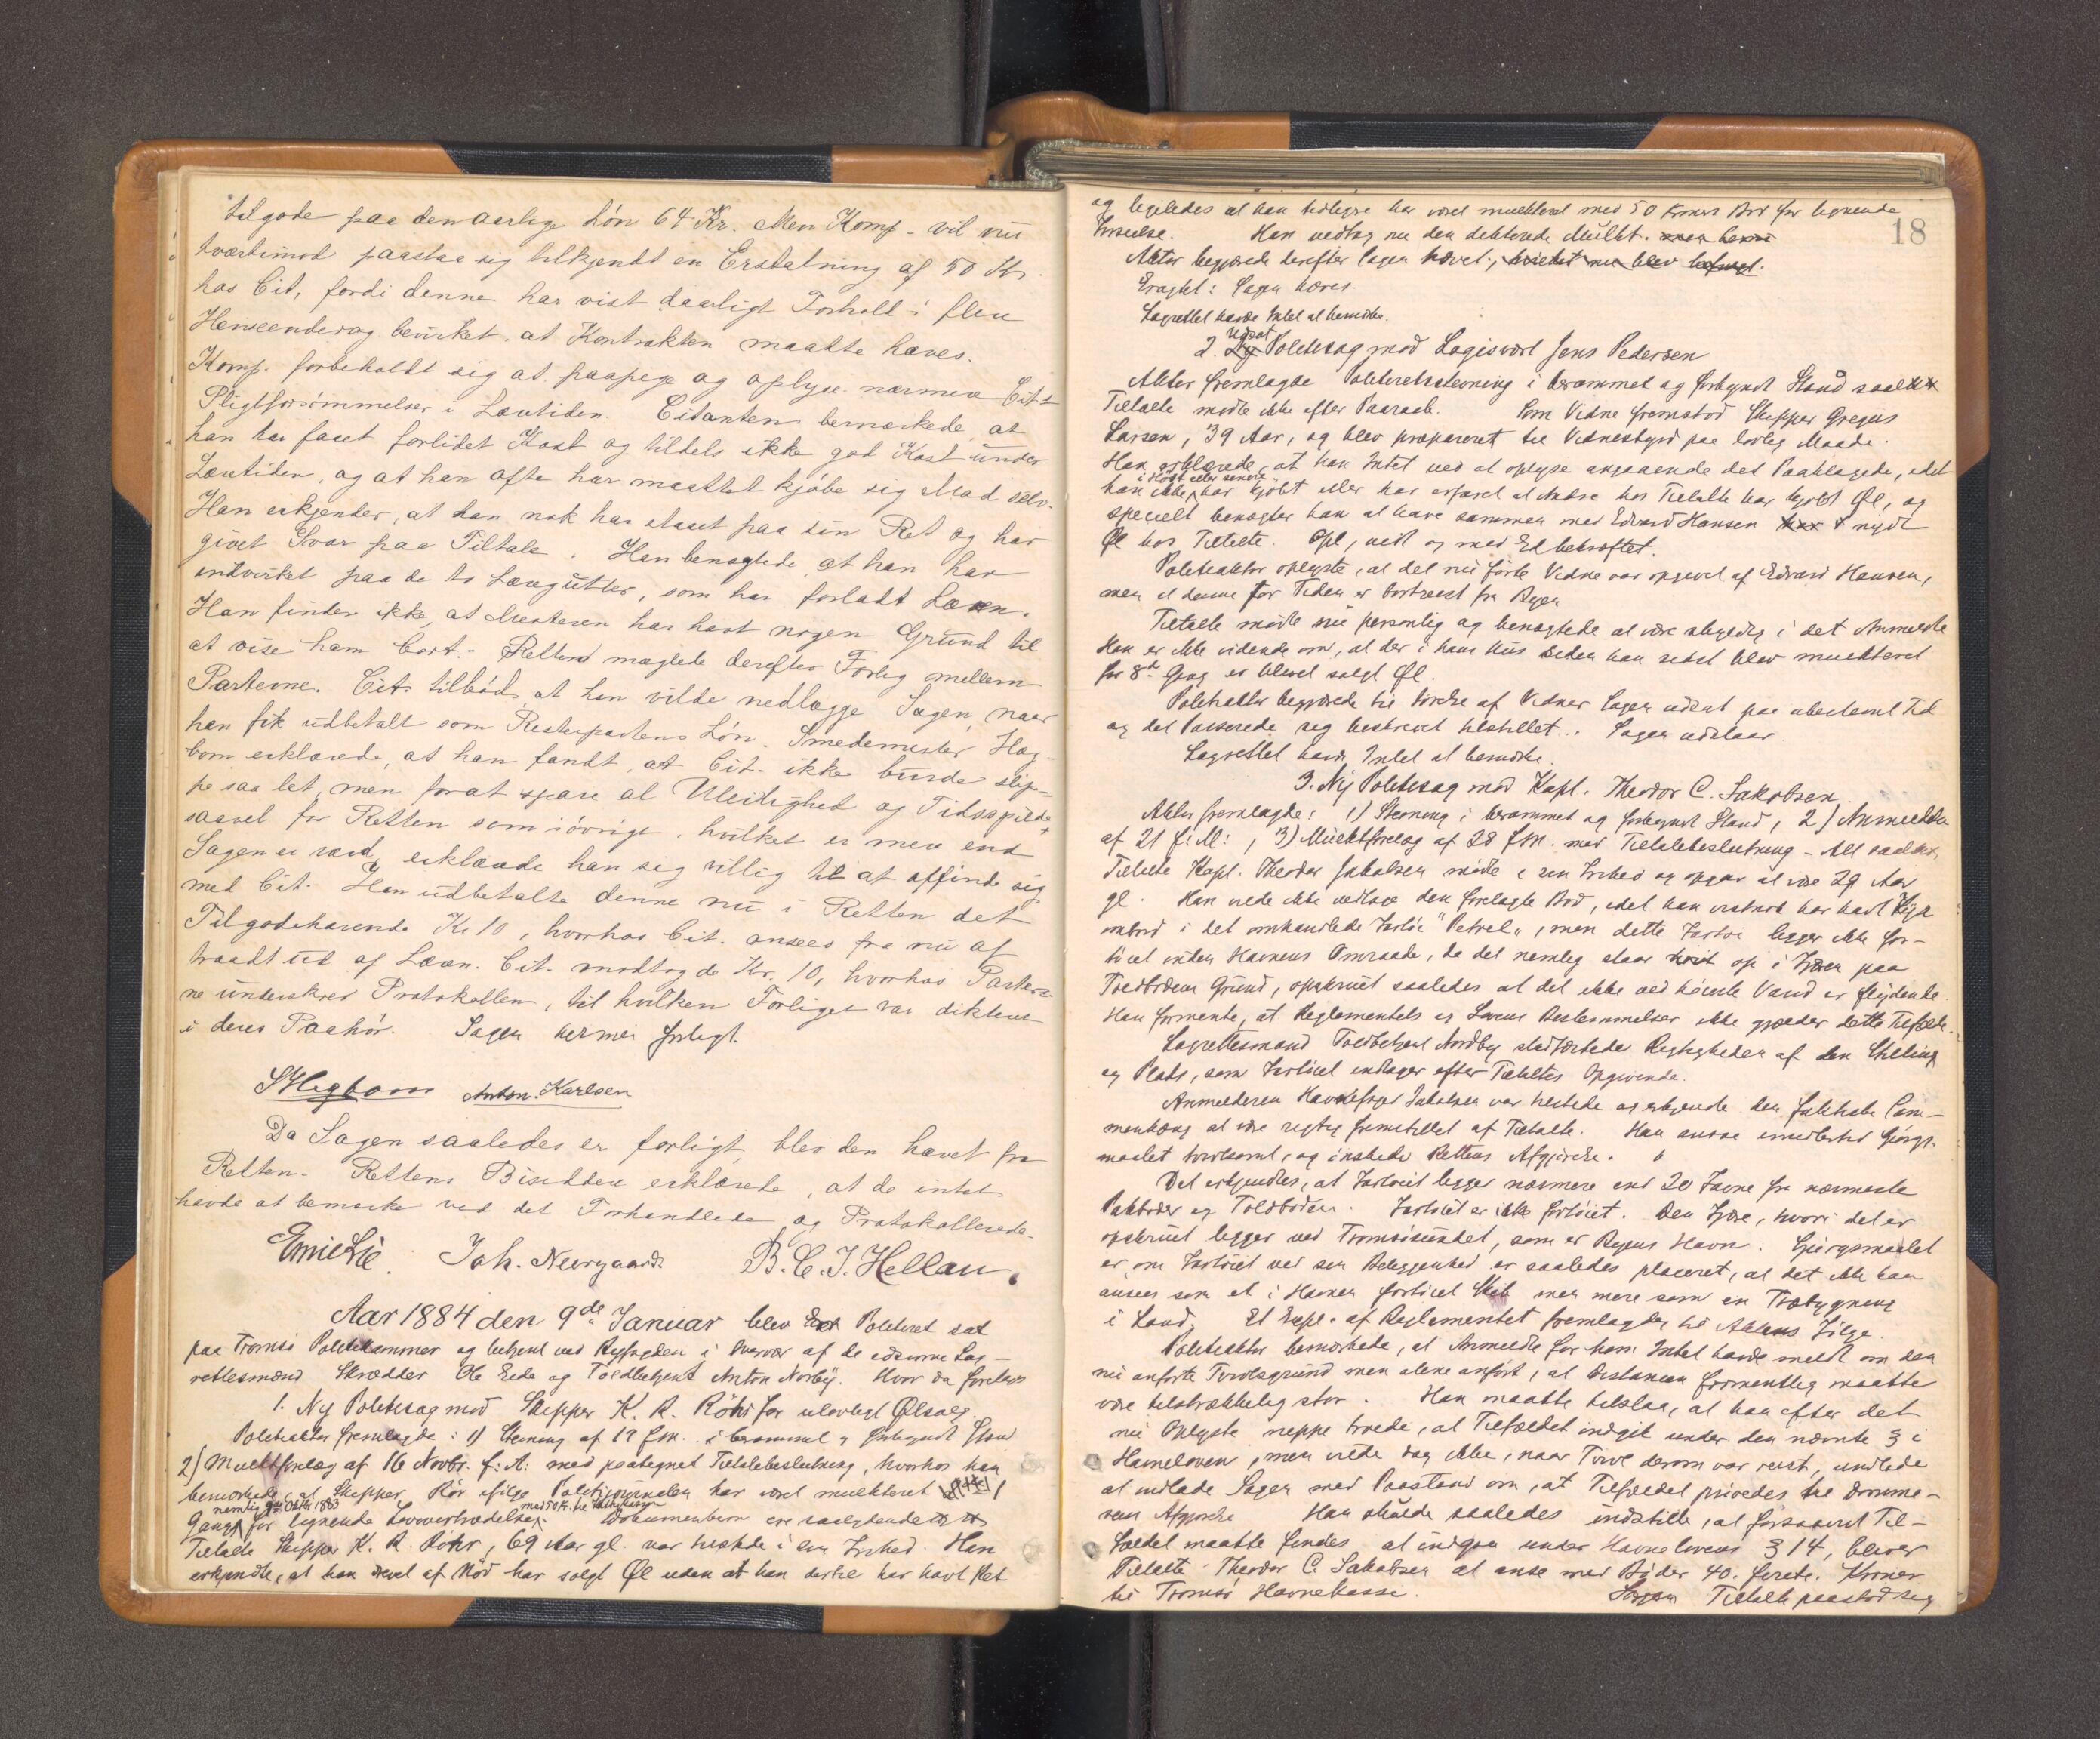 tilgode paa den aarlige Løn 64 Kr. Men Komp. vil nu
tværtimod paastaa sig tilkjendt en Erstatning af 50 Kr.
hos Cit., fordi denne har vist daarligt Forhold i flere
Henseender og bevirket, at Kontrakten maatte hæves.
Komp. forbeholdt sig at paapege og oplyse nærmere Cit.s
Pligtforsømmelser i Læretiden. Citanten bemærkede, at
han har faaet forlidet Kost og tildels ikke god Kost under
Læretiden, og at han ofte har maattet kjøbe sig Mad selv.
Han erkjender, at han nok har staaet paa sin Ret og har
givet Svar paa Tiltale. Han benægtede, at han har
indvirket paa de to Læregutter, som har forladt Læren.
Han finder ikke, at Mesteren har havt nogen Grund til
at vise ham bort. - Retten mæglede derefter Forlig mellem
Parterne. Cit. tilbød, at han vilde nedlægge Sagen, naar
han fik udbetalt som Resterpartens Løn. Smedemester Hæg-
bom erklærede, at han fandt, at Cit. ikke burde slip-
pe saa let, men for at spare al Uleilighed og Tidsspilde,
saavel for Retten som iøvrigt, hvilket er mere end
Sagen er værd, erklærede han sig villig til at affinde sig
med Cit. Han udbetalte denne nu i Retten det
Tilgodehavende Kr 10, hvorhos Cit. ansees fra nu af
traadt ud af Læren. Cit. modtog de Kr. 10, hvorhos Parter-
ne underskrev Protokollen, til hvilken Forliget var dikteret
i deres Paahør. Sagen hermed forligt.
SHegbom Anton. Karlsen
Da Sagen saaledes er forligt, blev den hævet fra
Retten. Rettens Bisiddere erklærede, at de intet
havde at bemærke ved det Forhandlede og Protokollerede.
Emil Lie. Joh. Neergaard. B. C. J. Hellan.
Aar 1884 den 9de Januar blev Politiret sat
paa Tromsø Politikammer og betjent ved Byfogden i Nærvær af de edsvorne Lag-
rettesmænd Skrædder Ole Eede og Toldbetjent Anton Norby. Hvor da foretoges
1. Ny Politisag mod Skipper K. R. Röhr for ulovligt Ølsalg.
Politiaktor fremlagde: 1) Stevning af 19 f.M. i berammet og forkyndt Stand
2) Mulktforelæg af 16 Novbr. f: A: med paategnet Tiltalebeslutning, hvorhos han
bemærkede, at Skipper Röhr ifølge Politijournalen har været mulkteret 1
nemlig Oktbr 1883 med 50 Kr. til
Gang for lignende Lovovertrædelse. Dokumenterne ere saalydende
Tiltalte Skipper K. R. Röhr, 69 Aar gl. var tilstede i sin Frihed. Han
erkjendte, at han drevet af Nød har solgt Øl uden at han dertil har havt Ret
18
og ligeledes at han tidligere har været mulkteret med 50 Kroners Bod for lignende
Forseelse. Han vedtog nu den dikterede Mulkt.
Aktor begjærede derefter Sagen hævet, hvilket nu blev
Eragtet: Sagen hæves.
Lagrettet havde Intet at bemærke.
2. Udsat Politisag mod Logisvært Jens Pedersen
Aktor fremlagde Politiretsstevning i berammet og forkyndt Stand saal.
Tiltalte mødte ikke efter Paaraab. Som Vidne fremstod Skipper Gregus
Larsen, 39 Aar, og blev præpareret til Vidnesbyrd paa lovlig Maade.
Han erklærede, at han Intet ved at oplyse angaaende det Paaklagede, idet
i Høst eller senere
han ikke har kjøbt eller har erfaret at Andre hos Tiltalte har kjøbt Øl, og
specielt benægter han at have sammen med Edvard Hansen nydt
Øl hos Tiltalte. Opl, vedt og med Ed bekræftet.
Politiaktor oplyste, at det nu førte Vidne var opgivet af Edvard Hansen,
men at denne for Tiden er bortreist fra Byen
Tiltalte mødte nu personlig og benægtede at være skyldig i det Anmeldte
Han er ikke vidende om, at der i hans Hus siden han sidst blev mulkteret
for 8de Gang er blevet solgt Øl.
Politiaktor begjærede til Førelse af Vidner Sagen udsat paa ubestemt Tid
og det Passerede sig beskrevet tilstillet. Sagen udstaar.
Lagrettet havde Intet at bemærke.
3. Ny Politisag mod Kapt. Theodor C. Jakobsen.
Aktor fremlagde: 1) Stevning i berammet og forkyndt Stand, 2) Anmeldelse
af 21 f: M:, 3) Mulktforelæg af 28 f.M. med Tiltalebeslutning - Alt saal.
Tiltalte Kapt. Theodor Jakobsen mødte i sin Frihed og opgav at være 29 Aar
gl. Han vilde ikke vedtage den forelagte Bod, idet han vistnok har havt Lys
ombord i det omhandlede Fartøi "Petrel", men dette Fartøi ligger ikke for-
tøiet inden Havnens Omraade, da det nemlig staar høit op i Fjæren paa
Toldbodens Grund, opskruet saaledes at det ikke ved høieste Vand er flydende.
Han formente, at Reglementets og Lovens Bestemmelser ikke gjælder dette Tilfælde.
Lagrettesmand Toldbetjent Nordby stadfæstede Rigtigheden af den Stilling
og Plads, som Fartøiet indtager efter Tiltaltes Opgivende.
Anmelderen Havnefoged Jakobsen var tilstede og erkjendte den faktiske Sam-
menhæng at være rigtig fremstillet af Tiltalte. Han ansaa imidlertid Spørgs-
maalet tvivlsomt, og ønskede Rettens Afgjørelse.
Det erkjendtes, at Fartøiet ligger nærmere end 20 Favne fra nærmeste
Pakboder og Toldboden. Fartøiet er ikke fortøiet. Den Fjære, hvori det er
opskruet ligger ved Tromsøsundet, som er Byens Havn. Spørgsmaalet
er, om Fartøiet ved sin Beliggenhed er saaledes placeret, at det ikke kan
ansees som et i Havnen fortøiet Skib men mere som en Træbygning
i Land. Et Expl. af Reglementet fremlagdes til Aktens Følge.
Politiaktor bemærkede, at Anmeldte for ham Intet havde meldt om den
nu anførte Tvivlsgrund men alene anført, at Distancen formentlig maatte
være tilstrækkelig stor. Han maatte tilstaa, at han efter det
nu Oplyste neppe troede, at Tilfældet indgik under den nævnte § i
Havneloven, men vilde dog ikke, naar Tvivl derom var reist, undlade
at indlade Sagen med Paastand om, at Tilfældet prøvedes til Domme-
rens Afgjørelse Han skulde saaledes indstille, at forsaavidt Til-
fældet maatte findes at indgaa under Havnelovens § 14, bliver
Tiltalte Theodor C Jakobsen at anse med Bøder 40. firети. Kroner
til Tromsø Havnekasse. Tiltalte paastod sig